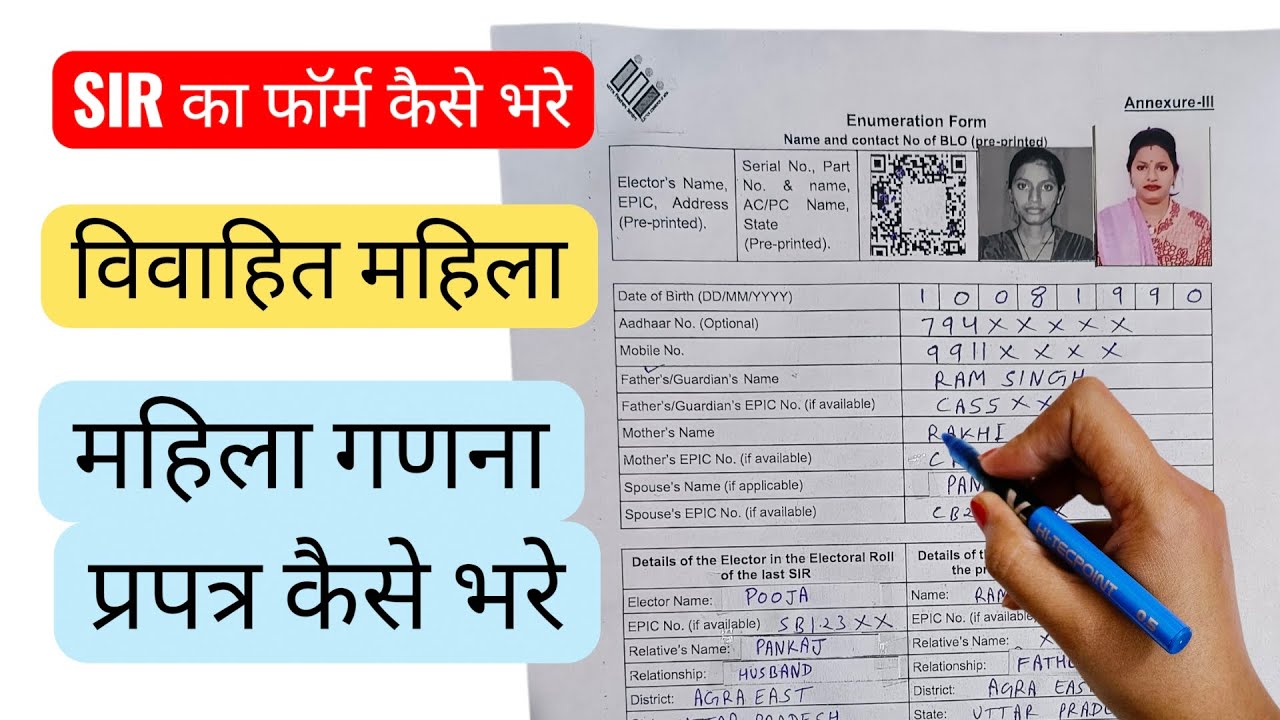 SIR का फॉर्म कैसे भरे
विवाहित महिला
महिला गणना
प्रपत्र कैसे भरे
Annexure-III
Enumeration Form
Name and contact No of BLO (pre-printed)
Elector's Name,
EPIC, Address
(Pre-printed).
Serial No., Part
No. & name,
AC/PC Name,
State
(Pre-printed).
Date of Birth (DD/MM/YYYY) 1 0 0 8 1 9 9 0
Aadhaar No. (Optional) 794XXXXX
Mobile No. 9911XXXX
Father's/Guardian's Name RAM SINGH
Father's/Guardian's EPIC No. (if available) CASSXX
Mother's Name RAKHI
Mother's EPIC No. (if available) C
Spouse's Name (if applicable) PAN
Spouse's EPIC No. (if available) CB2 X
Details of the Elector in the Electoral Roll
of the last SIR
Elector Name: POOJA
EPIC No. (if available) SB123XX
Relative's Name: PANKAJ
Relationship: HUSBAND
District: AGRA EAST
UTTAR PRADESH
Details of th
the pr
Name: RAM
EPIC No. (if available)
Relative's Name: X
Relationship: FATHE
District: AGRA EAS
State: UTTAR PRADE
HI-TECPOINT 0.5